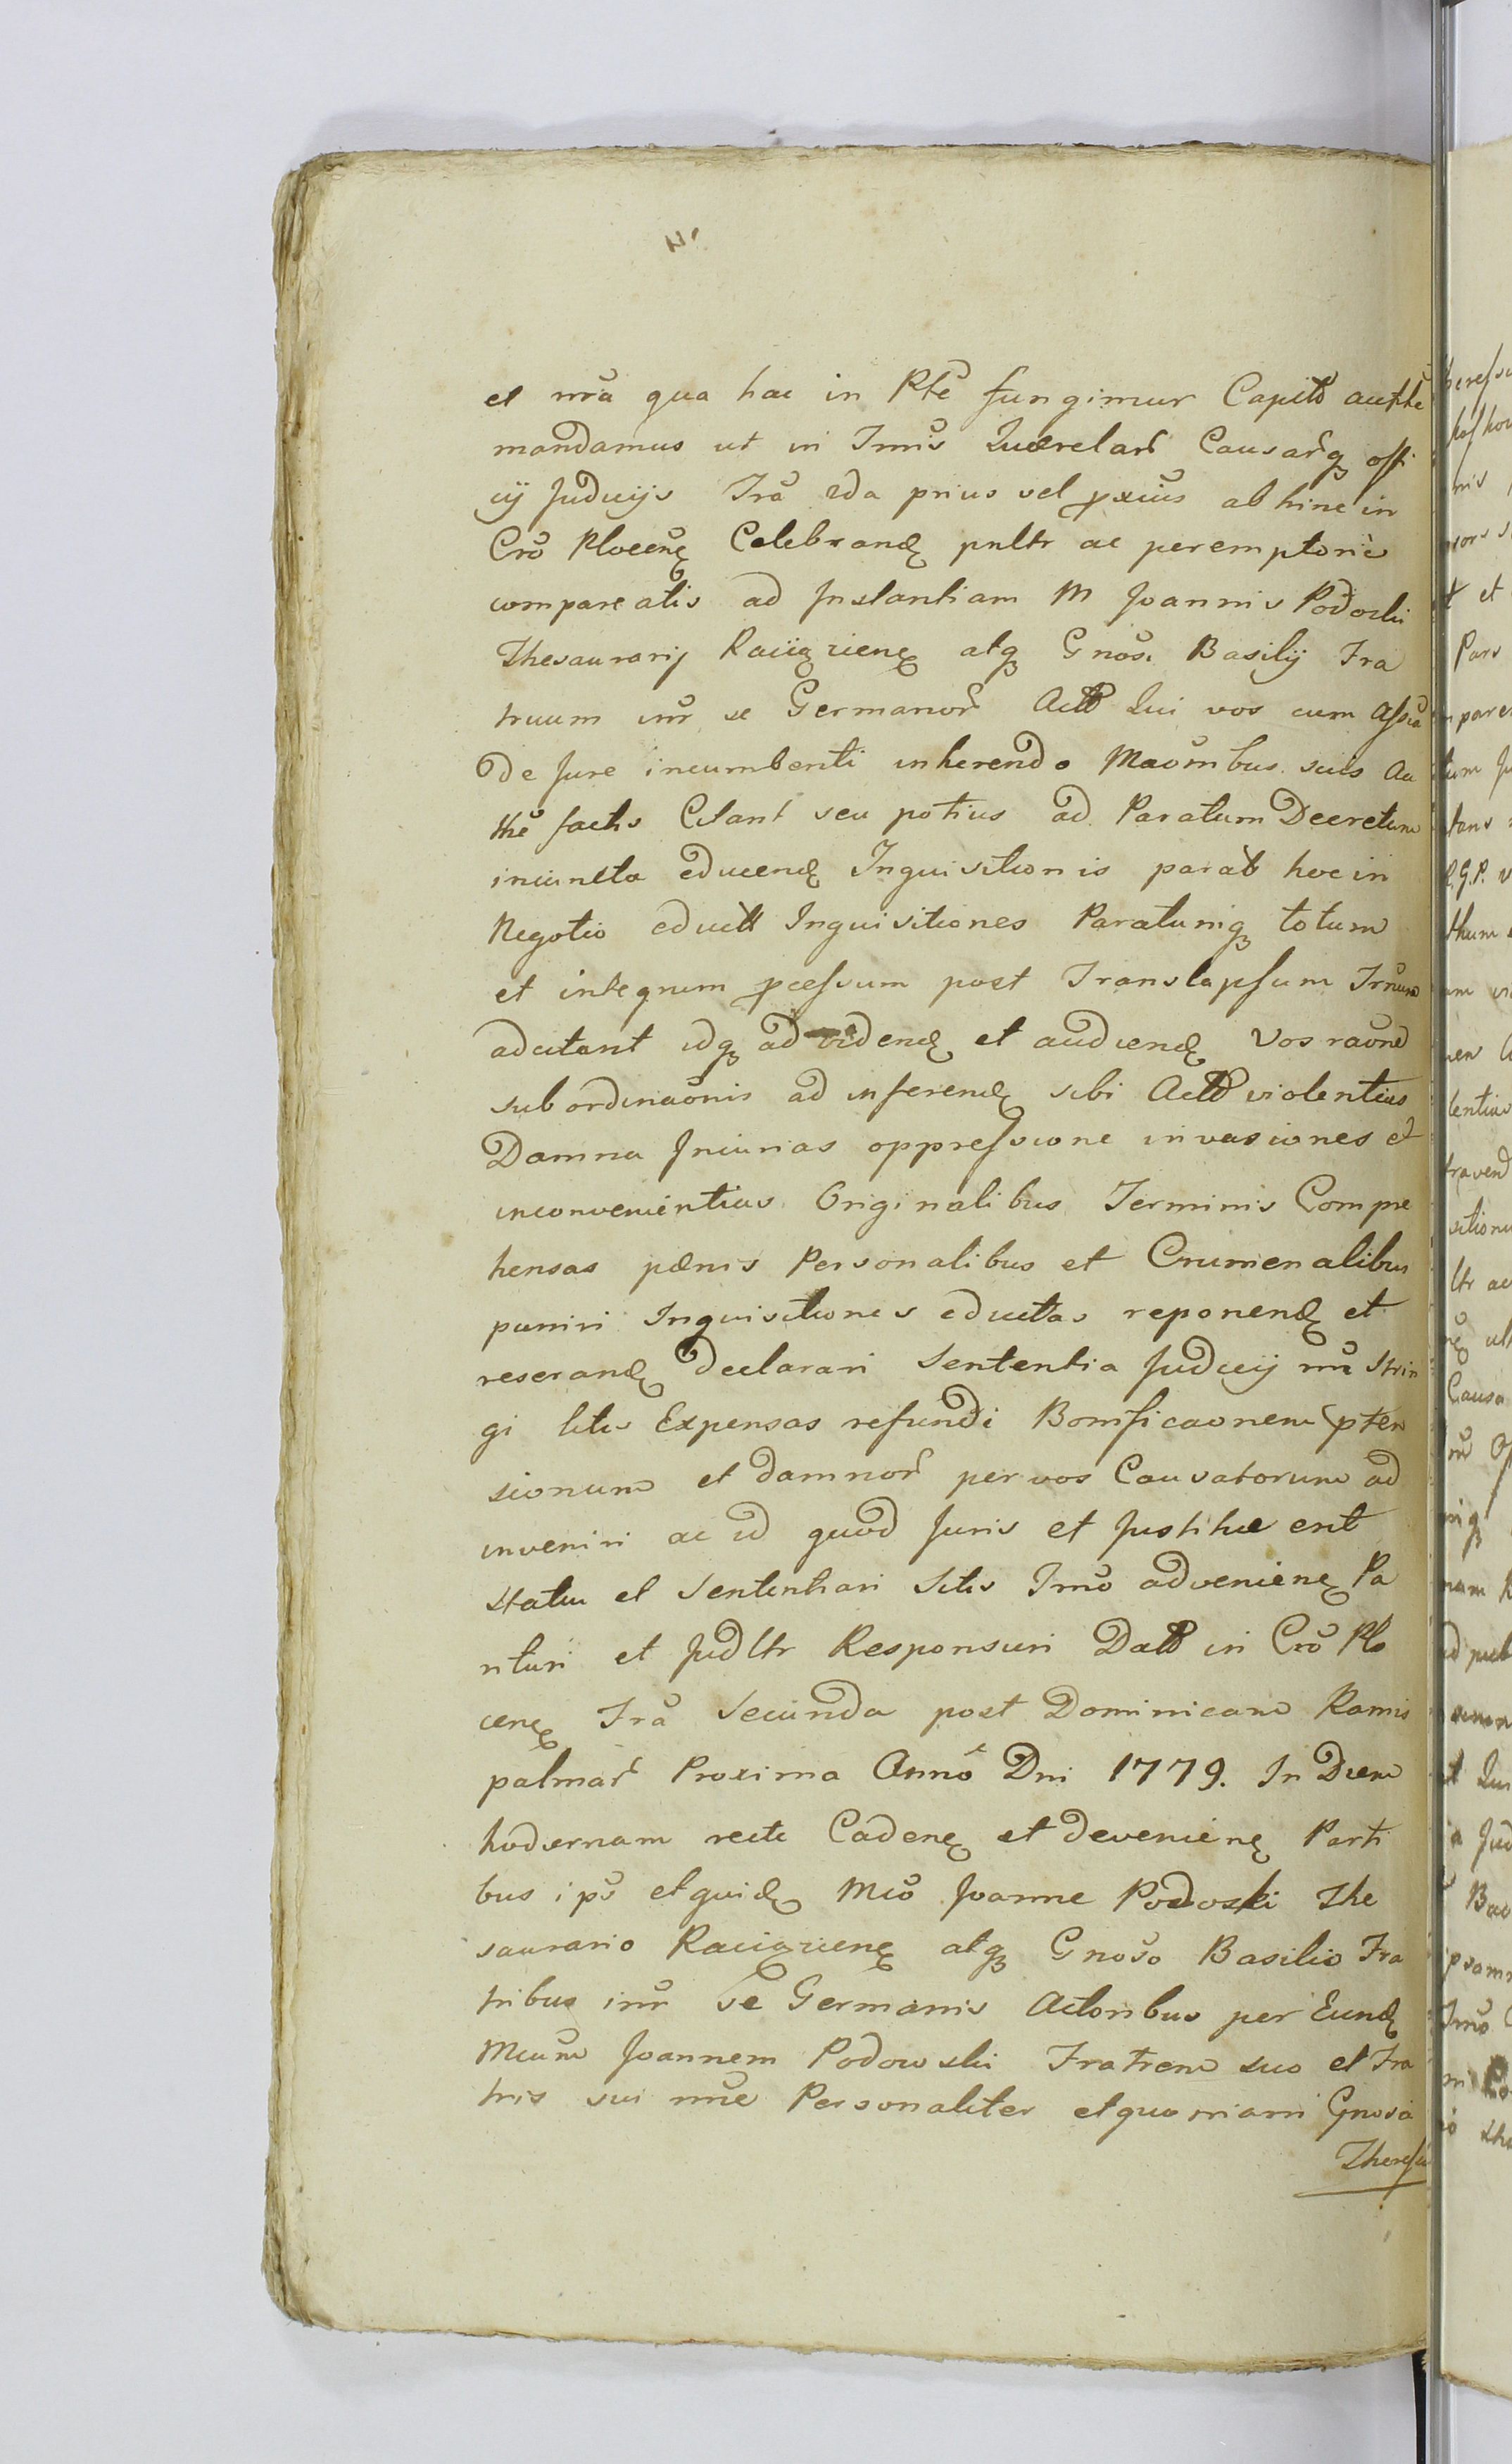 et nrã qua hac in Ptẽ fungimur Capitt authẽ
mandamus ut in Tmis Quærelar Causarq offi
cij Judicijs Frã 2da prius vel pximẽ ab hinc in
Crõ Plocen Celebrand pnltr ac peremptorie
compareatis ad Instantiam M Joannis Podoski
Thesaurarij Raciązien atq Gnosi Basilij Fra
truum intr se Germanor Actt Qui vos cum Assia
de Jure incumbenti inherendo Maonibus suis Au
thẽ factis Citant seu potius ad Paratum Decretum
iniuncta educend Inquisitionis parat hoc in
Negotio eductt Inquisitiones Paratumq totum
et integrum pcessum post Translapsum Trnum
adcitant idq ad vidend et audiend Vos raõne
subordinaõnis ad inferend sibi Actt violentias
Damna Iniurias oppressione invasiones et
inconvenientias Originalibus Terminis Compre
hensas pænis Personalibus et Crumenalibus
puniri Inquisitiones eductas reponend et
reserand declarari Sententia Judicij nri Strin
gi litis Expensas refundi Bonificaonem pten
sionum et damnor per vos Causatorum ad
inveniri ac id quod Juris et Justitiæ erit
Statui et Sententiari Sitis Trnõ advenien Pa
rituri et Judltr Responsuri Datt in Crõ Plo
cen Frã Secunda post Dominicam Ramis
palmar Proxima Anno Dni 1779. In Diem
hodiernam recte Caden et devenien Parti
bus ipis et quid Mco Joanne Podoski The
saurario Raciązien atq Gnoso Basilio Fra
tribus intr se Germanis Actoribus per Eund
Mcum Joannem Podowski Fratrem suo et Fra
tris sui nne Personaliter et quoniam Gnosa
Theressia